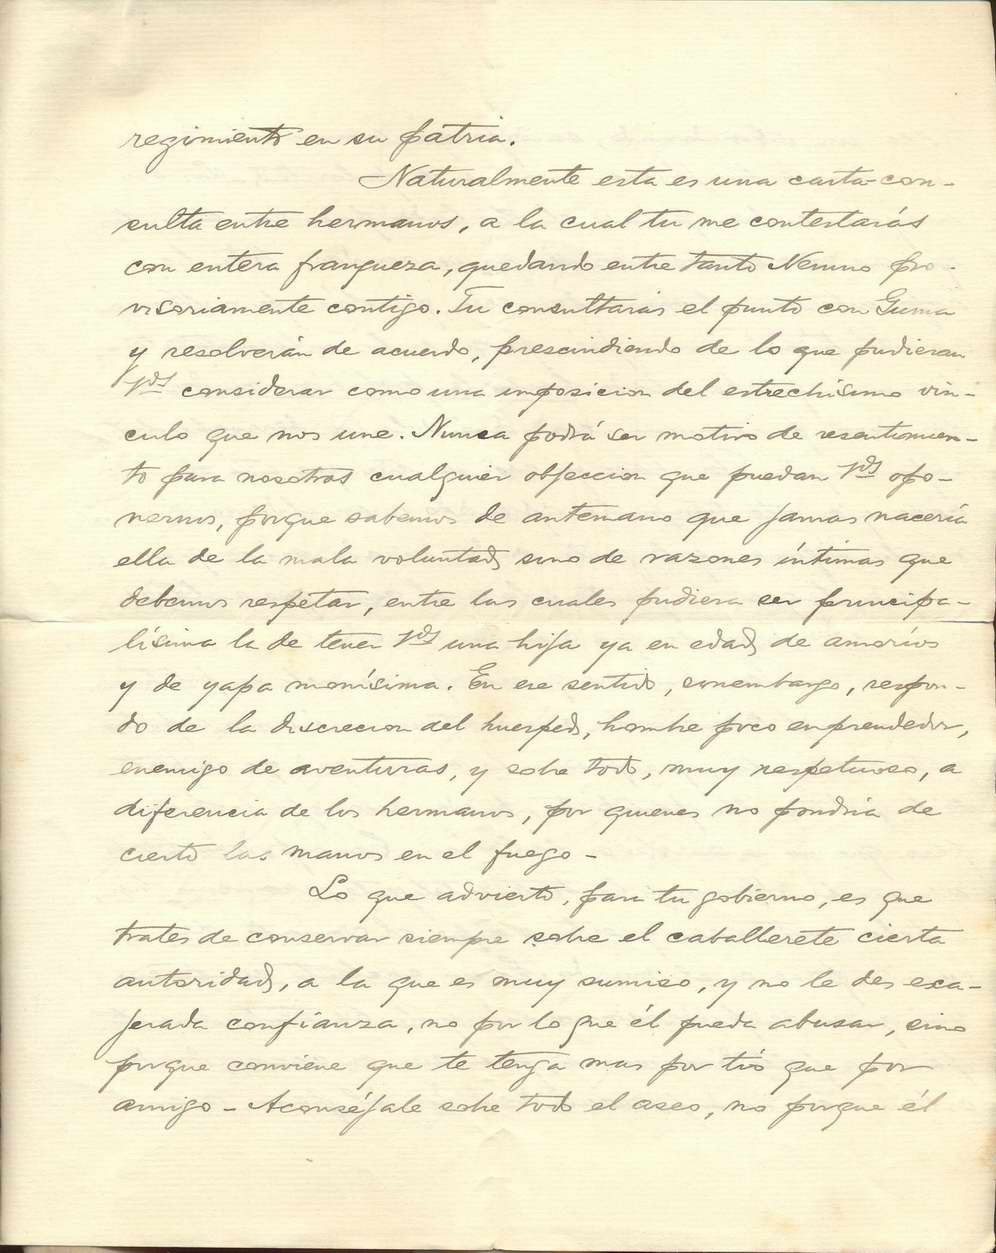 regimiento en su patria.
Naturalmente esta es una carta-con-
sulta entre hermanos, a la cual tu me contestarás
con entera franqueza, quedando entre tanto Nenino pro-
visoriamente contigo. Tu consultarás el punto con Guma
y resolverán de acuerdo, prescindiendo de lo que pudieran
Vds considerar como una imposicion del estrechísimo vin-
culo que nos une. Nunca podrá ser motivo de resentimien-
to para nosotros cualquier objeccion que puedan Vds opo-
nernos, porque sabemos de antemano que jamas naceria
ella de la mala voluntad, sino de razones íntimas que
debemos respetar, entre las cuales pudiera ser principa-
lísima la de tener Vds una hija ya en edad de amoríos
y de yapa monísima. En ese sentido, sinembargo, respon-
do de la discrecion del huesped, hombre poco emprendedor,
enemigo de aventuras, y sobre todo, muy respetuoso, a
diferencia de los hermanos, por quienes no pondria de
cierto las manos en el fuego -
Lo que advierto, para tu gobierno, es que
trates de conservar siempre sobre el caballerete cierta
autoridad, a la que es muy sumiso, y no le des exa-
jerada confianza, no por lo que él pueda abusar, sino
porque conviene que te tenga mas por tío que por
amigo - Aconséjale sobre todo el aseo, no porque él